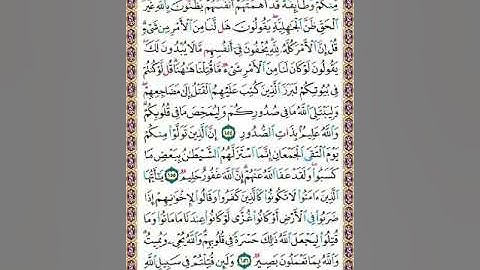 مِنكُمْ وَطَائِفَةٌ قَدْ أَهَمَّتْهُمْ أَنفُسُهُمْ يَظُنُّونَ بِاللَّهِ غَيْرَ
الْحَقِّ ظَنَّ الْجَاهِلِيَّةِ يَقُولُونَ هَل لَّنَا مِنَ الْأَمْرِ مِن شَيْءٍ
قُلْ إِنَّ الْأَمْرَ كُلَّهُ لِلَّهِ يُخْفُونَ فِي أَنفُسِهِم مَّا لَا يُبْدُونَ لَكَ
يَقُولُونَ لَوْ كَانَ لَنَا مِنَ الْأَمْرِ شَيْءٌ مَّا قُتِلْنَا هَاهُنَا قُل لَّوْ كُنتُمْ
فِي بُيُوتِكُمْ لَبَرَزَ الَّذِينَ كُتِبَ عَلَيْهِمُ الْقَتْلُ إِلَىٰ مَضَاجِعِهِمْ
وَلِيَبْتَلِيَ اللَّهُ مَا فِي صُدُورِكُمْ وَلِيُمَحِّصَ مَا فِي قُلُوبِكُمْ
وَاللَّهُ عَلِيمٌ بِذَاتِ الصُّدُورِ ١٥٤ إِنَّ الَّذِينَ تَوَلَّوْا مِنكُمْ
يَوْمَ الْتَقَى الْجَمْعَانِ إِنَّمَا اسْتَزَلَّهُمُ الشَّيْطَانُ بِبَعْضِ مَا
كَسَبُوا وَلَقَدْ عَفَا اللَّهُ عَنْهُمْ إِنَّ اللَّهَ غَفُورٌ حَلِيمٌ ١٥٥ يَا أَيُّهَا
الَّذِينَ آمَنُوا لَا تَكُونُوا كَالَّذِينَ كَفَرُوا وَقَالُوا لِإِخْوَانِهِمْ إِذَا
ضَرَبُوا فِي الْأَرْضِ أَوْ كَانُوا غُزًّى لَّوْ كَانُوا عِندَنَا مَا مَاتُوا وَمَا
قُتِلُوا لِيَجْعَلَ اللَّهُ ذَٰلِكَ حَسْرَةً فِي قُلُوبِهِمْ وَاللَّهُ يُحْيِي وَيُمِيتُ
وَاللَّهُ بِمَا تَعْمَلُونَ بَصِيرٌ ١٥٦ وَلَئِن قُتِلْتُمْ فِي سَبِيلِ اللَّهِ